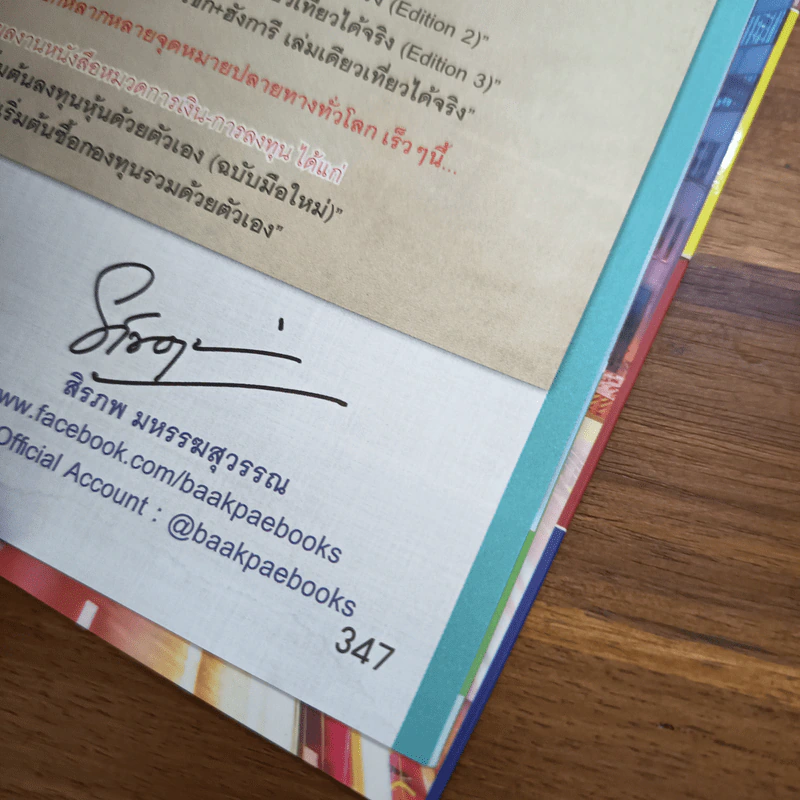 (Edition 2)"
เที่ยวได้จริง (Edition 3)"
ฮังการี เล่มเดียวเที่ยวได้จริง"
หลากหลายจุดหมายปลายทางทั่วโลก เร็วๆนี้...
ผลงานหนังสือหมวดการเงิน-การลงทุน ได้แก่
ต้นลงทุนหุ้นด้วยตัวเอง (ฉบับมือใหม่)"
เริ่มต้นซื้อกองทุนรวมด้วยตัวเอง"
สิรภพ มหรรฆสุวรรณ
www.facebook.com/baakpaebooks
Official Account : @baakpaebooks
347